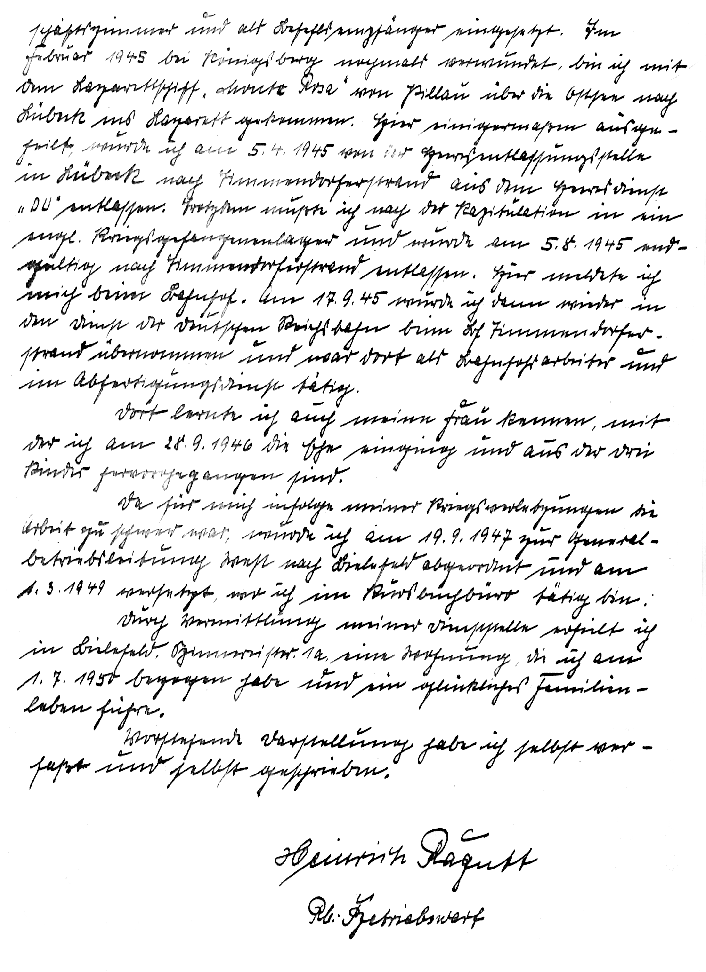 schäftszimmer und als Befehlsempfänger eingesetzt. Im
Februar 1945 bei Königsberg nochmals verwundet, bin ich mit
dem Lazarettschiff „Monte Rosa" von Pillau über die Ostsee nach
Lübeck ins Lazarett gekommen. Hier einigermaßen ausge-
heilt, wurde ich am 5.4.1945 von der Heeresentlassungsstelle
in Lübeck nach Timmendorferstrand aus dem Heeresdienst
„DU" entlassen. Trotzdem mußte ich nach der Kapitulation in ein
engl. Kriegsgefangenenlager und wurde am 5.8.1945 end-
gültig nach Timmendorferstrand entlassen. Hier meldete ich
mich beim Bahnhof. Am 17.9.45 wurde ich dann wieder in
den Dienst der Deutschen Reichsbahn beim Bf Timmendorfer-
strand übernommen und war dort als Bahnhofsarbeiter und
im Abfertigungsdienst tätig.
Dort lernte ich auch meine Frau kennen, mit
der ich am 28.9.1946 die Ehe einging und aus der drei
Kinder hervorgegangen sind.
Da für mich infolge meiner Kriegsverletzungen die
Arbeit zu schwer war, wurde ich am 19.9.1947 zur General-
betriebsleitung West nach Bielefeld abgeordnet und am
1.3.1949 versetzt, wo ich im Kursbuchbüro tätig bin.
Durch Vermittlung meiner Dienststelle erhielt ich
in Bielefeld, 1a, eine Wohnung, die ich am
1.7.1950 bezogen habe und ein glückliches Familien-
leben führe.
Vorstehende Darstellung habe ich selbst ver-
faßt und selbst geschrieben.
Heinrich Ragutt
Rb.-Betriebswart